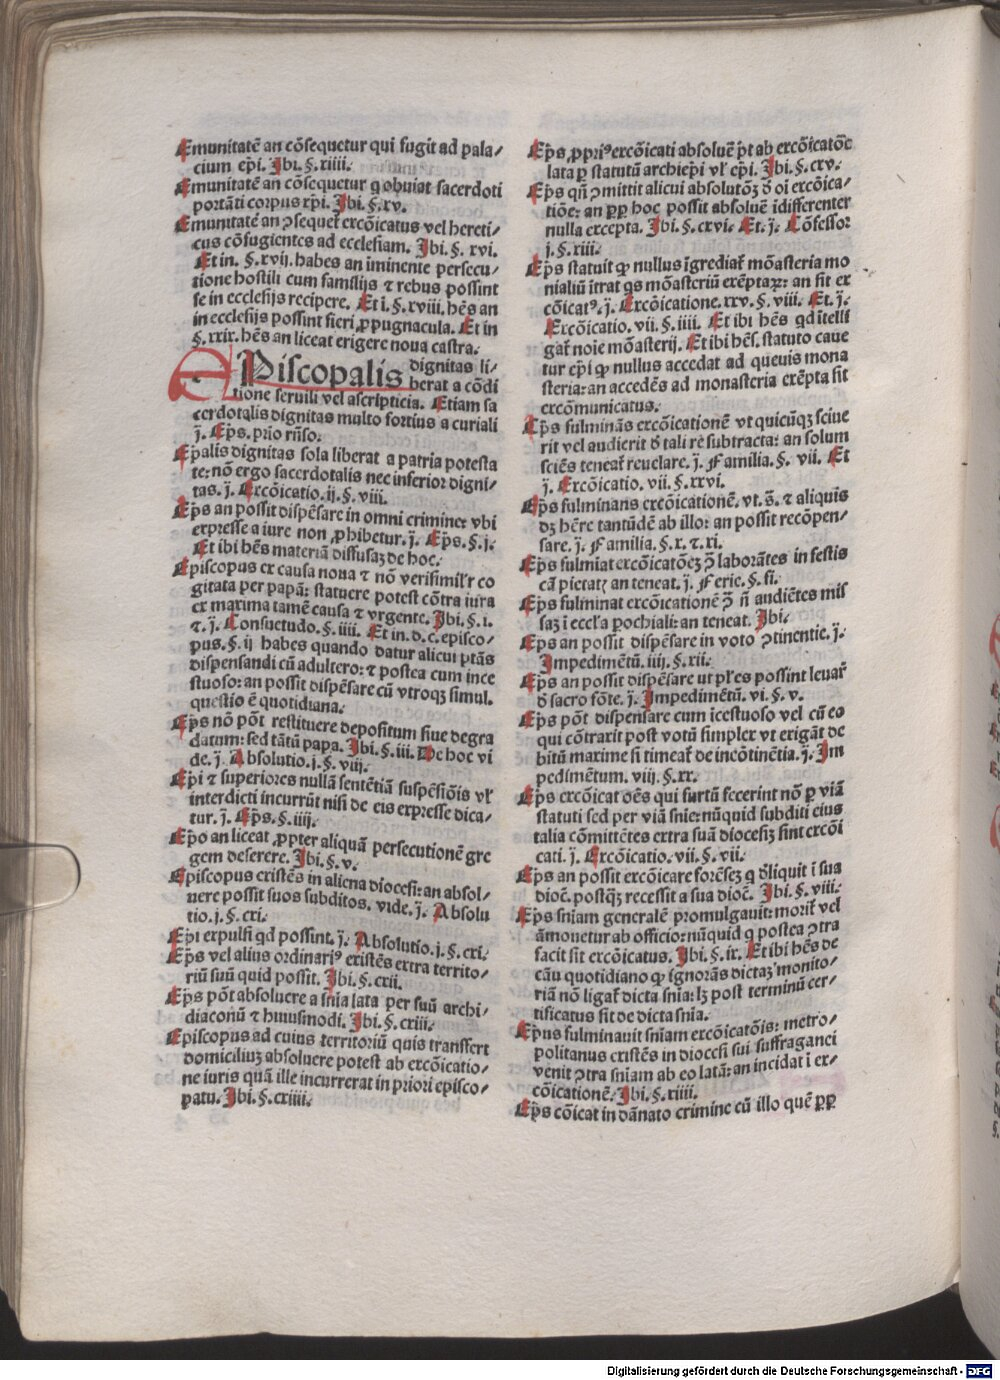 Emunitatē an cōsequetur qui fugit ad pala/
cium ep̄i. Ibi. §. xiiii.
Emunitatē an cōsequetur q obuiat sacerdoti
portāti corpus xp̄i. Ibi. §. xv.
Emunitatē an ꝯsequet̄ excōicatus vel hereti/
cus cōfugientes ad ecclesiam. Ibi. §. xvi.
Et in. §. xvij. habes an iminente persecu/
tione hostili cum familijs ⁊ rebus possint
se in ecclesijs recipere. Et ī. §. xviii. hēs an
in ecclesijs possint fieri ꝓpugnacula. Et in
§. xxix. hēs an liceat erigere noua castra.
EPiscopalis dignitas li/
berat a cōdi
tione seruili vel ascripticia. Etiam sa
cerdotalis dignitas multo fortius a curiali
j̄. Ep̄s. prīo rn̄so.
Ep̄alis dignitas sola liberat a patria potesta
te: nō ergo sacerdotalis nec inferior digni/
tas. j̄. Excōicatio. ij. §. viii.
Ep̄s an possit dispēsare in omni crimine: vbi
expresse a iure non ꝓhibetur. j̄. Ep̄s. §. j.
Et ibi hēs materiā diffusaꝫ de hoc.
Episcopus ex causa noua ⁊ nō verisimil'r co
gitata per papā: statuere potest cōtra iura
ex maxima tamē causa ⁊ vrgente. Ibi. §. i.
⁊. j̄. Consuetudo. §. iiii. Et in. d. c. episco/
pus. §. ij habes quando datur alicui ptās
dispensandi cū adultero: ⁊ postea cum ince
stuoso: an possit dispēsare cū vtroqꝫ simul.
questio ē quotidiana.
Ep̄s nō pōt restituere depositum siue degra
datum: sed tātū papa. Ibi. §. iii. De hoc vi
de. j̄. Absolutio. j. §. viij.
Ep̄i ⁊ superiores nullā sentētiā suspēsiōis vl'
interdicti incurrūt nisi de eis expresse dica/
tur. j̄. Ep̄s. §. iiij.
Ep̄o an liceat ꝓpter aliquā persecutionē gre
gem deserere. Ibi. §. v.
Episcopus existēs in aliena diocesi: an absol/
uere possit suos subditos. vide. j̄. Absolu
tio. j. §. cxi.
Ep̄i expulsi qd possint. j̄. Absolutio. j. §. cxi.
Ep̄s vel alius ordinari⁹ existēs extra territo/
riū suū quid possit. Ibi. §. cxii.
Ep̄s pōt absoluere a sn̄ia lata per suū archi/
diaconū ⁊ huiusmodi. Ibi. §. cxiii.
Episcopus ad cuius territoriū quis transfert
domiciliuꝫ absoluere potest ab excōicatio/
ne iuris quā ille incurrerat in priori episco/
patu. Ibi. §. cxiiii.
Ep̄s ꝓpri⁹ excōicati absoluē p̄t ab excōicatōe
lata ꝑ statutū archiep̄i vl' ep̄i. Ibi. §. cxv.
Ep̄s qn̄ ꝯmittit alicui absolutōꝫ d̄ oī excōica/
tiōe: an ꝓp̄ hoc possit absoluē īdifferenter
nulla excepta. Ibi. §. cxvi. Et. j̄. Cōfessor
j. §. xiii.
Ep̄s statuit ꝙ nullus īgrediat̄ mōasteria mo
nialiū ītrat qs mōasteriū exēptaꝝ: an sit ex
cōicat⁹. j̄. Excōicatione. xxv. §. viii. Et. j̄.
Excōicatio. vii. §. iiii. Et ibi hēs qd ītelli
gat̄ noīe mōasterij. Et ibi hēs. statuto caue
tur ep̄i ꝙ nullus accedat ad queuis mona
steria: an accedēs ad monasteria exēpta sit
excōmunicatus.
Ep̄s fulminās excōicationē vt quicūqꝫ sciue
rit vel audierit d̄ tali rē subtracta: an solum
sciēs teneat̄ reuelare. j̄. Familia. §. vii. Et
j̄. Excōicatio. vii. §. xxvi.
Ep̄s fulminans excōicationē. vt. s̄. ⁊ aliquis
dꝫ hēre tantūdē ab illo: an possit recōpen/
sare. j̄. Familia. §. x. ⁊. xi.
Ep̄s fulmiat excōicatōeꝫ ꝯ̄ laborātes in festis
cā pietatꝭ an teneat. j̄. Ferie. §. fi.
Ep̄s fulminat excōicationē ꝯ̄ n̄ audiētes mis
saꝫ ī eccl'a pochiali: an teneat. Ibi.
Ep̄s an possit dispēsare in voto ꝯtinentie. j̄.
Impedimētū. iiij. §. xii.
Ep̄s an possit dispēsare ut pl'es possint leuar̄
d̄ sacro fōte. j̄. Impedimētū. vi. §. v.
Ep̄s pōt dispensare cum icestuoso vel cū eo
qui cōtraxit post votū simplex vt exigāt de
bitū maxime si timeat̄ de incōtinētia. j̄. Im
pedimētum. viij. §. xx.
Ep̄s excōicat oēs qui furtū fecerint nō ꝑ viā
statuti sed per viā snīe: nūquid subditi eius
talia cōmittētes extra suā diocesiꝫ sint excōi
cati. j̄. Excōicatio. vii. §. vii.
Ep̄s an possit excōicare forēseꝫ q d̄liquit ī sua
dioē. postqꝫ recessit a sua dioē. Ibi. §. viii.
Ep̄s sn̄iam generalē promulgauit: morit̄ vel
āmouetur ab officio: nūquid q postea ꝯtra
facit sit excōicatus. Ibi. §. ix. Et ibi hēs de
cāu quotidiano ꝙ ignorās dictaꝫ monito/
riā nō ligat̄ dicta snīa: lꝫ post terminū cer/
tificatus sit de dicta snīa.
Ep̄us fulminauit sn̄iam excōicatōis: metro/
politanus existēs in diocesi sui suffraganei
venit ꝯtra sn̄iam ab eo latā: an incidat ī ex/
cōicationē. Ibi. §. xiiii.
Ep̄s cōicat in dānato crimine cū illo quē ꝓp̄
Digitalisierung gefördert durch die Deutsche Forschungsgemeinschaft - DFG